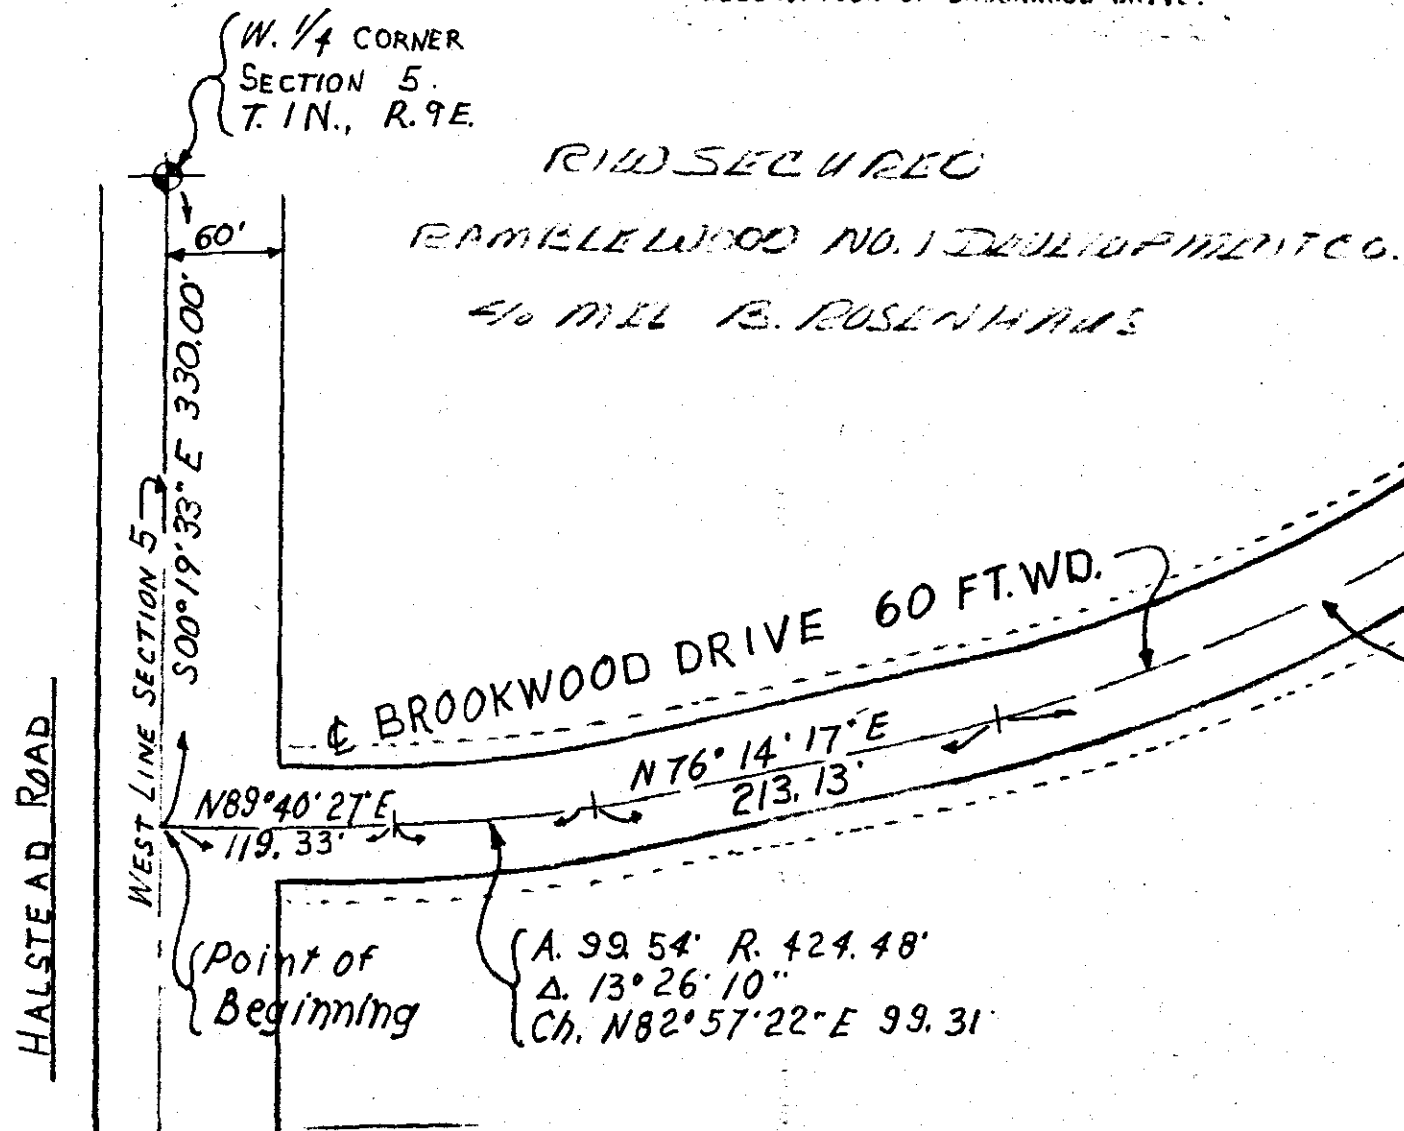 W. 1/4 CORNER
SECTION 5.
T. 1 N., R. 9 E.
R/W SECURED
RAMBLEWOOD NO. 1 DEVELOPMENT CO.
c/o B. ROSENHAUS
60'
S00°19'33" E 330.00'
WEST LINE SECTION 5
HALSTEAD ROAD
℄ BROOKWOOD DRIVE 60 FT. WD.
N 76° 14' 17" E
213.13'
N89°40'27"E
119.33'
Point of
Beginning
A. 99.54' R. 424.48'
Δ. 13° 26' 10"
Ch. N82°57'22"E 99.31'